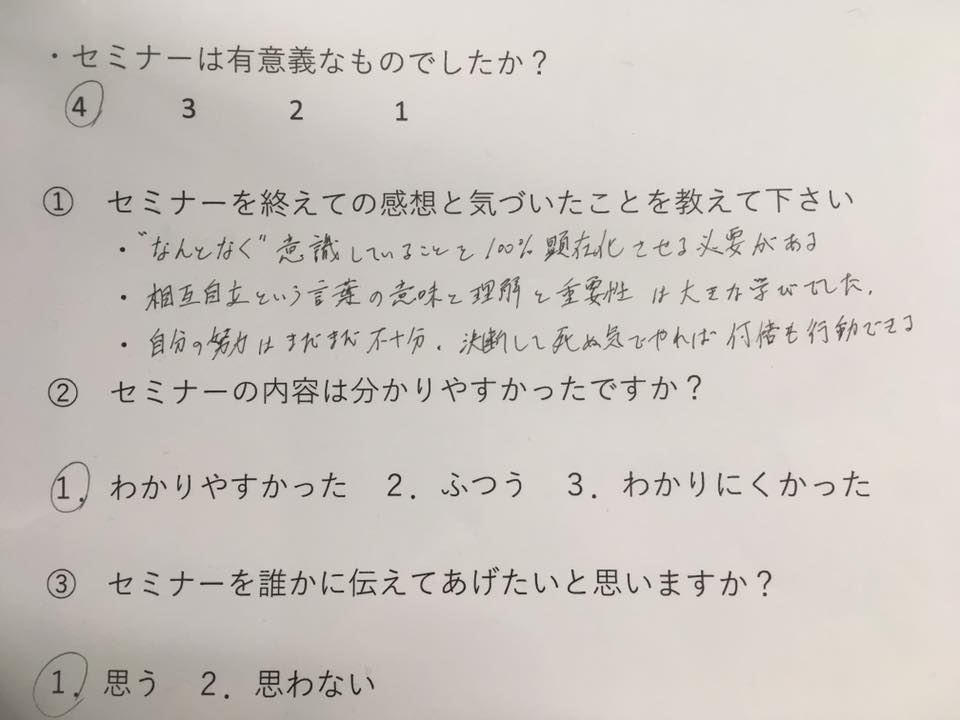 ・セミナーは有意義なものでしたか？
4 3 2 1
① セミナーを終えての感想と気づいたことを教えて下さい
・"なんとなく"意識していることを100%顕在化させる必要がある
・相互自立という言葉の意味と理解と重要性は大きな学びでした.
・自分の努力はまだまだ不十分．決断して死ぬ気でやれば何倍も行動できる
② セミナーの内容は分かりやすかったですか？
1．わかりやすかった 2．ふつう 3．わかりにくかった
③ セミナーを誰かに伝えてあげたいと思いますか？
1．思う 2．思わない